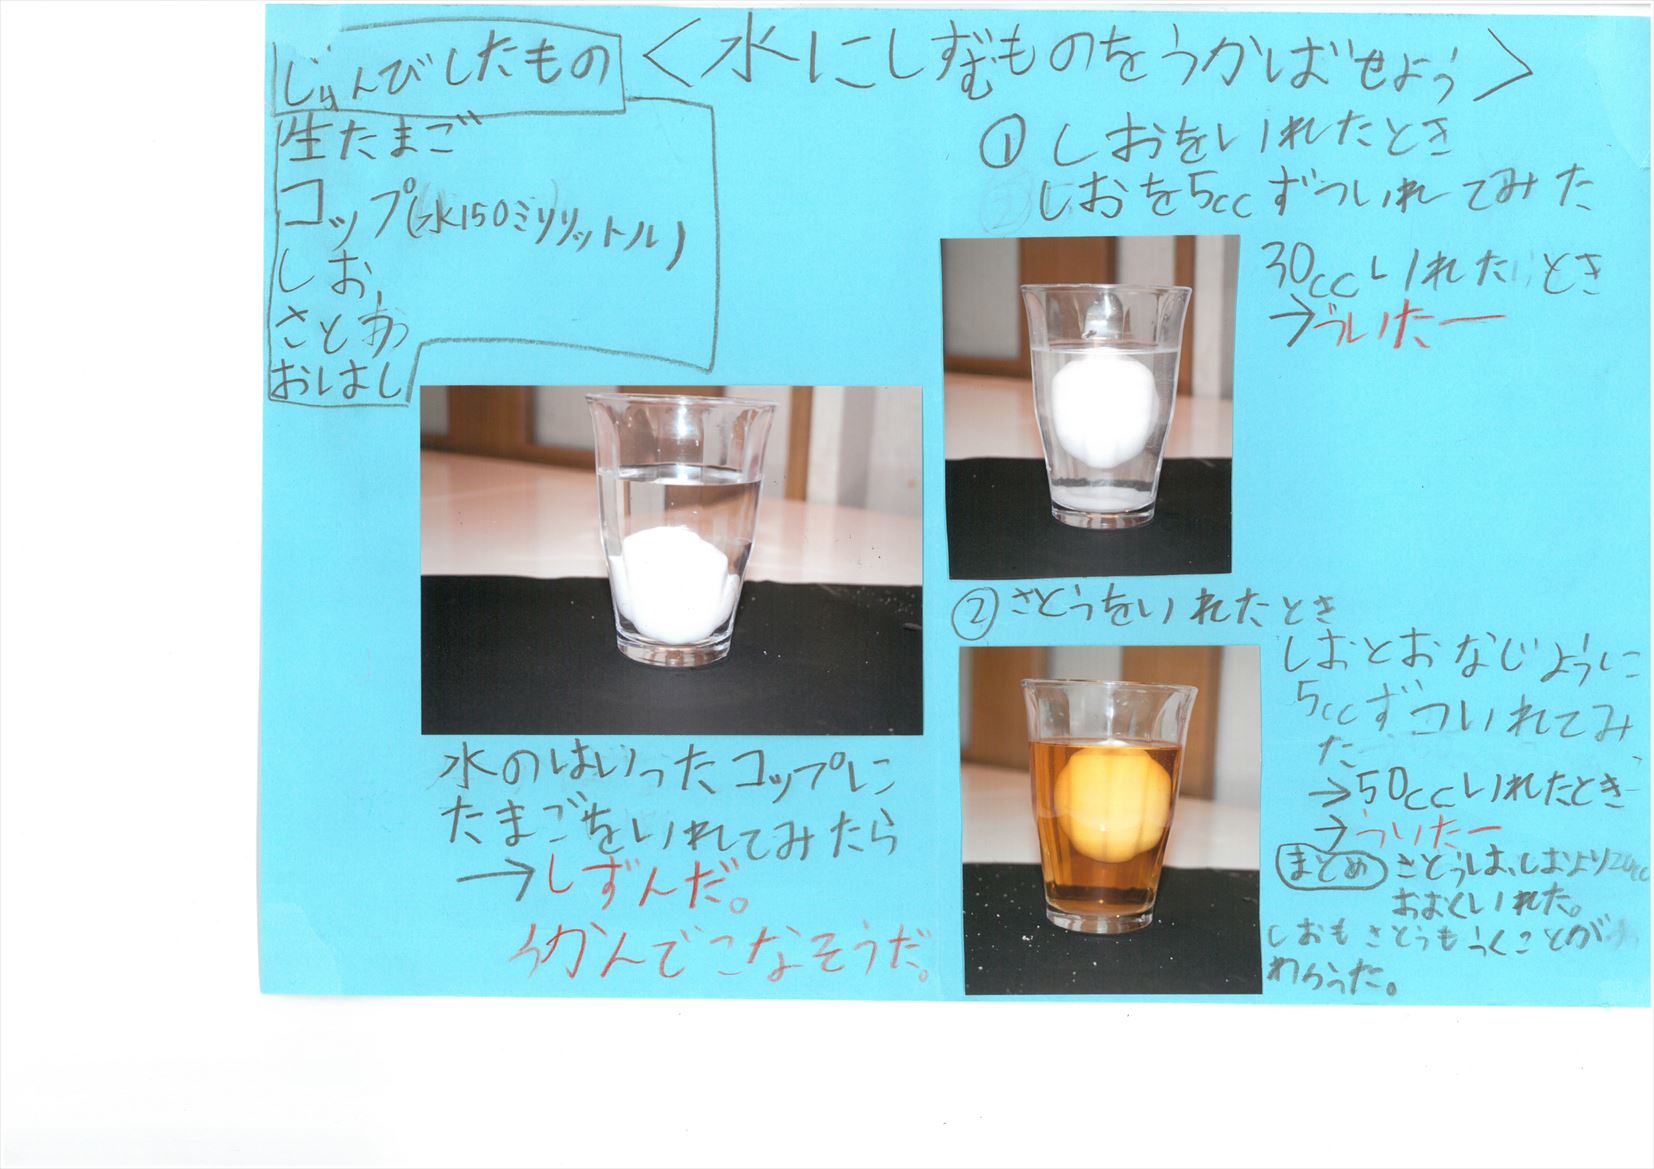 じゅんびしたもの
生たまご
コップ(水150ミリリットル)
しお
さとお
おはし
<水にしずむものをうかばせよう>
水のはいったコップに
たまごをいれてみたら
→しずんだ。
うかんでこなそうだ。
①しおをいれたとき
しおを5ccずついれてみた
30ccいれたとき
→ういたー
②さとうをいれたとき
しおとおなじように
5ccずついれてみ
た
→50ccいれたとき
→ういたー
まとめ さとうは、しおより20cc
おおくいれた。
しおもさとうもうくことが
わかった。